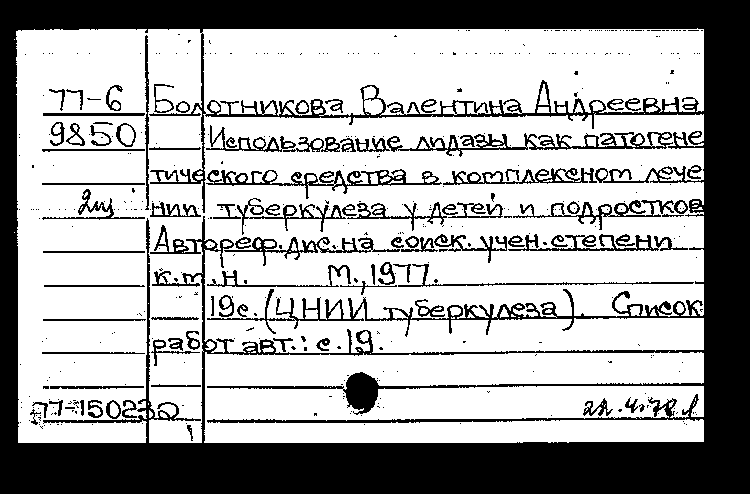 77-6 Болотникова, Валентина Андреевна
9850 Использование лидазы как патогене
тического средства в комплексном лече
2щ нии туберкулеза у детей и подростков
Автореф. дис. на соиск. учен. степени
к.м.н. М., 1977.
19с. (ЦНИИ туберкулеза). Список
работ авт.: с.19.
77-15023